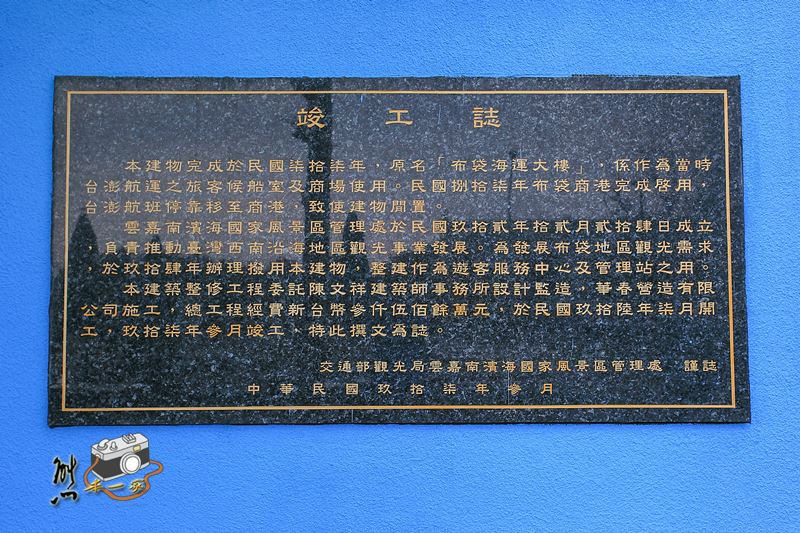 竣工誌
本建物完成於民國柒拾柒年，原名「布袋海運大樓」，係作為當時
台澎航運之旅客候船室及商場使用。民國捌拾柒年布袋商港完成啓用，
台澎航班停靠移至商港，致使建物閒置。
雲嘉南濱海國家風景區管理處於民國玖拾貳年拾貳月貳拾肆日成立
，負責推動臺灣西南沿海地區觀光事業發展。為發展布袋地區觀光需求
，於玖拾肆年辦理撥用本建物，整建作為遊客服務中心及管理站之用。
本建築整修工程委託陳文祥建築師事務所設計監造，華春營造有限
公司施工，總工程經費新台幣參仟伍佰餘萬元，於民國玖拾陸年柒月開
工，玖拾柒年參月竣工，特此撰文為誌。
交通部觀光局雲嘉南濱海國家風景區管理處　謹誌
中華民國玖拾柒年參月